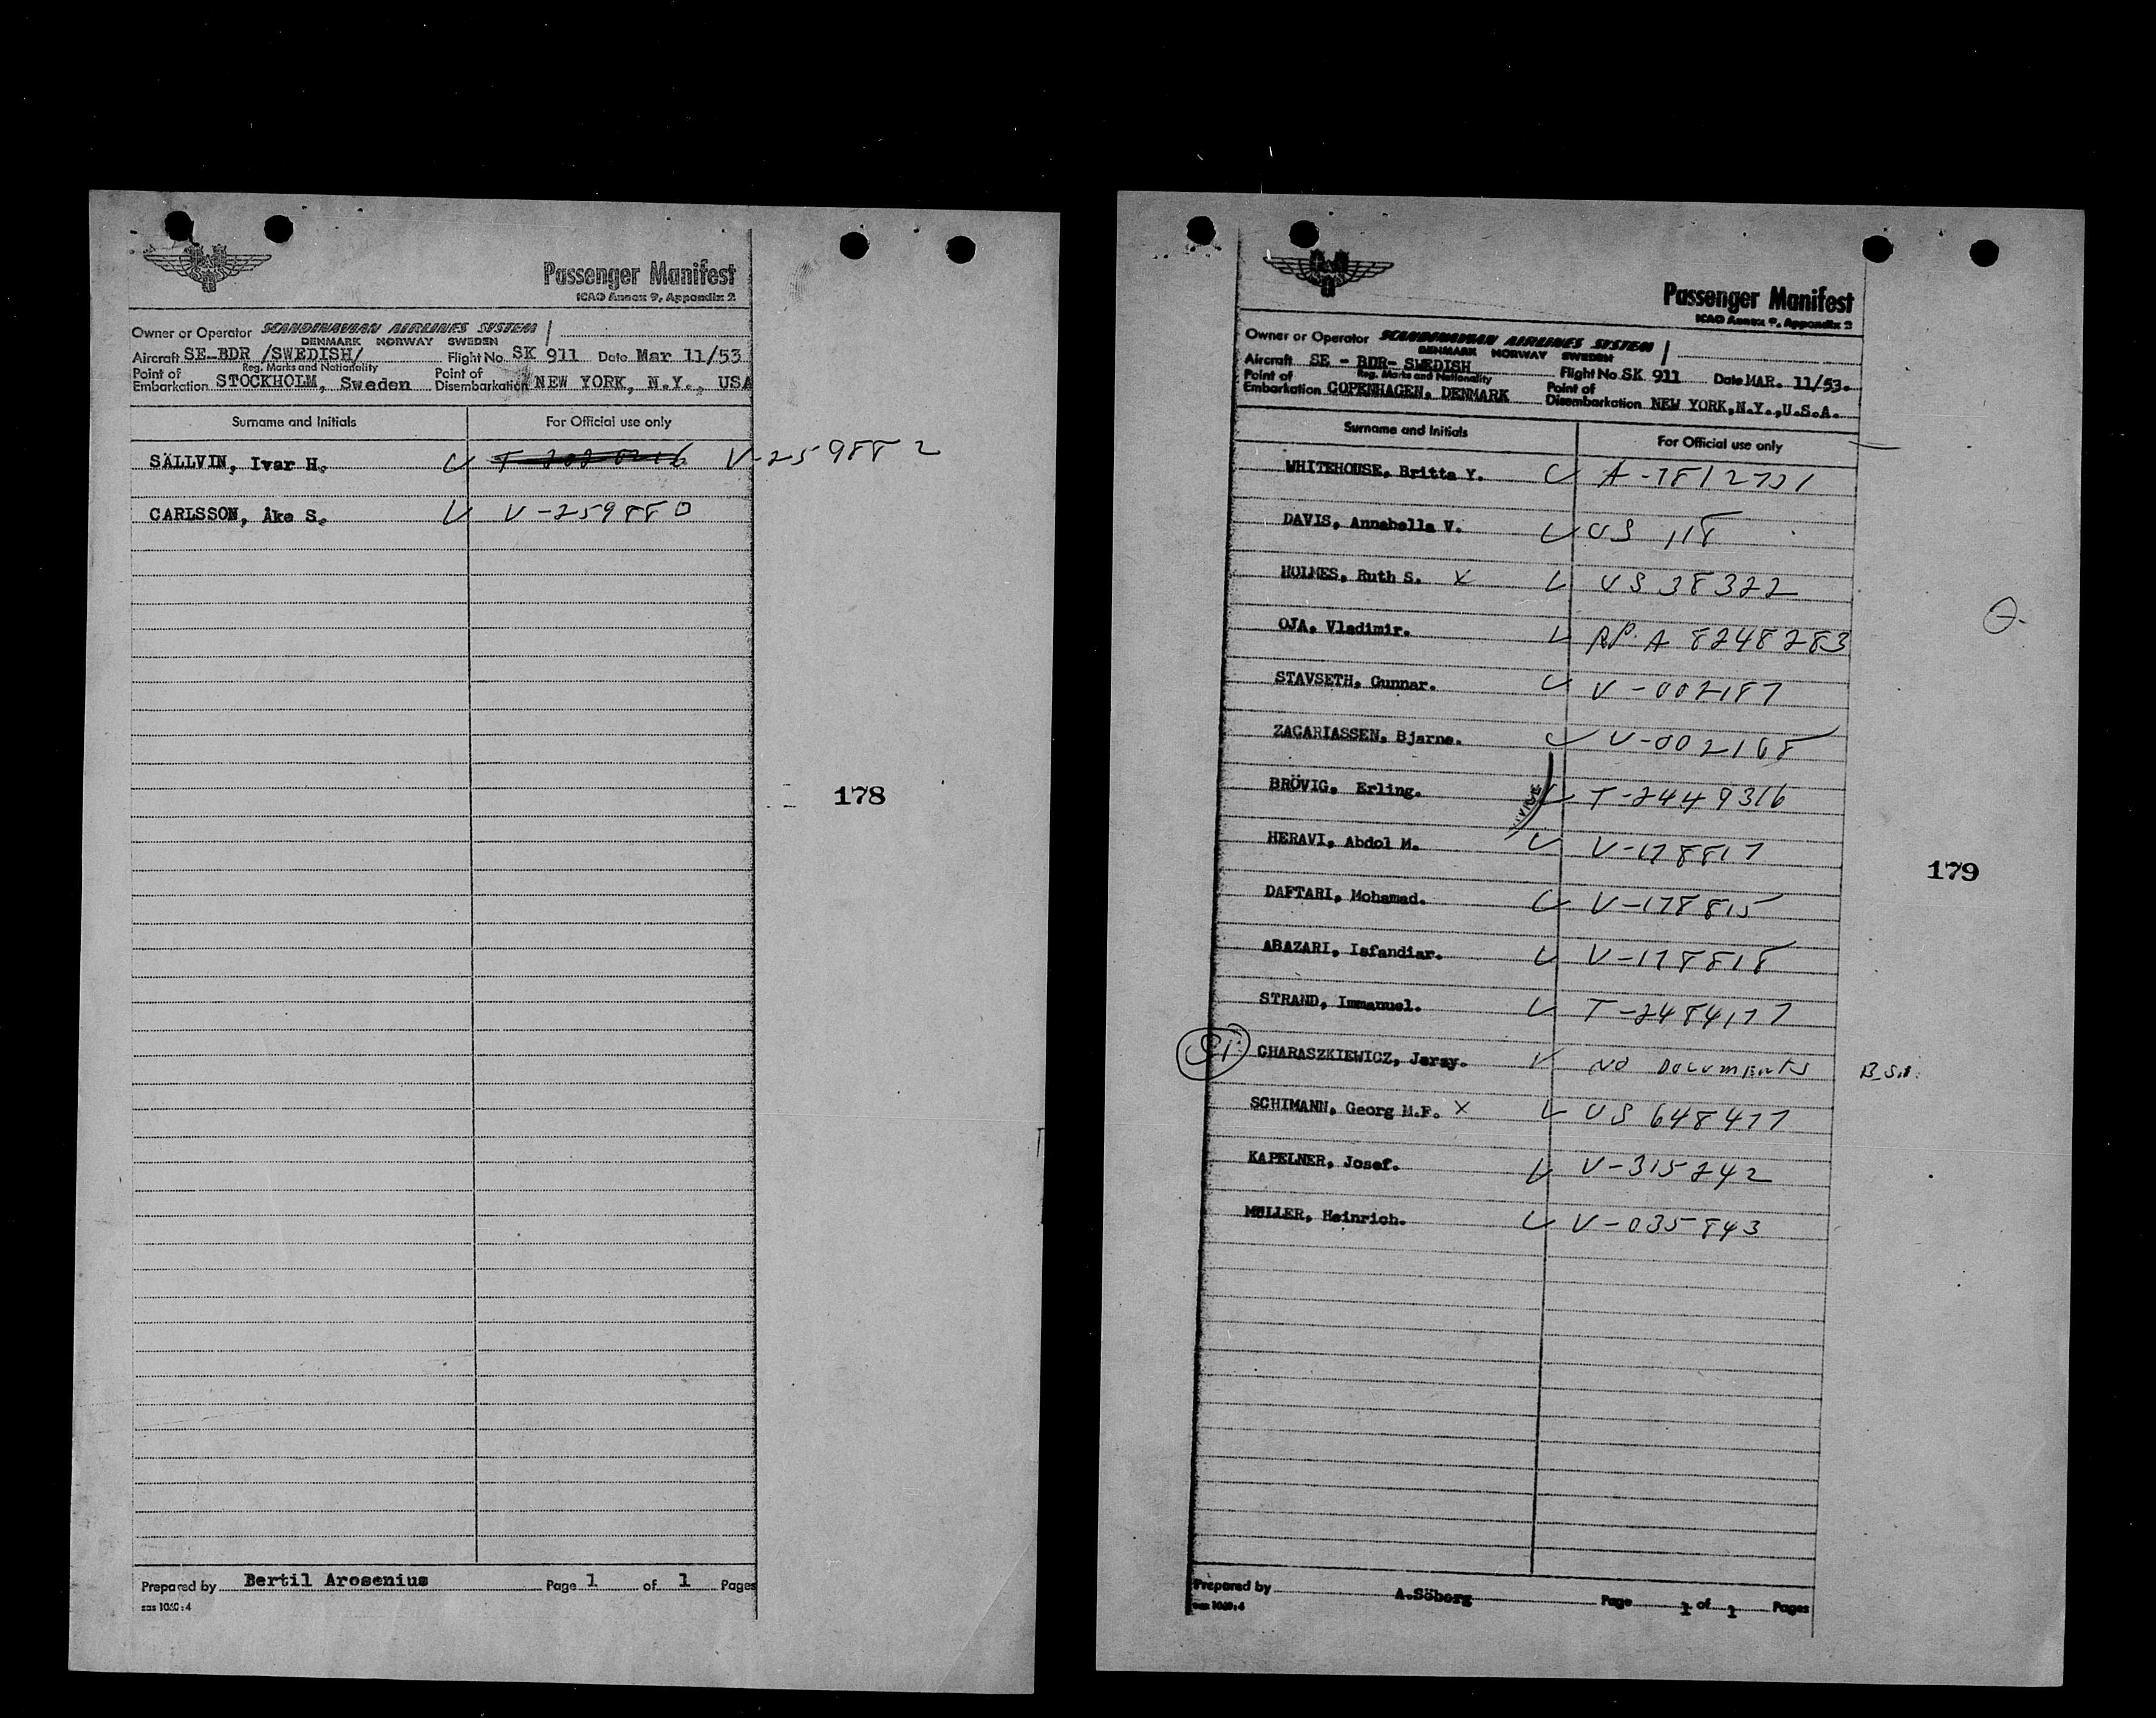 Passenger Manifest
ICAO Annex 9, Appendix 2
Owner or Operator SCANDINAVIAN AIRLINES SYSTEM
DENMARK NORWAY SWEDEN
Aircraft SE-BDR /SWEDISH/ Flight No. SK 911 Date Mar 11/53
Reg. Marks and Nationality
Point of Embarkation STOCKHOLM, Sweden Point of Disembarkation NEW YORK, N.Y., USA
Surname and Initials For Official use only
SÄLLVIN, Ivar H. V-259882
CARLSSON, Åke S. V-259880
178
Prepared by Bertil Arosenius Page 1 of 1 Pages
sas 1060:4
Passenger Manifest
ICAO Annex 9, Appendix 2
Owner or Operator SCANDINAVIAN AIRLINES SYSTEM
DENMARK NORWAY SWEDEN
Aircraft SE - BDR- SWEDISH Flight No. SK 911 Date MAR. 11/53.
Reg. Marks and Nationality
Point of Embarkation COPENHAGEN, DENMARK Point of Disembarkation NEW YORK,N.Y.,U.S.A.
Surname and Initials For Official use only
WHITEHOUSE, Britta Y. A-7812701
DAVIS, Annabella V. US 118
HOLMES, Ruth S. X US 38322
OJA, Vladimir. RP. A 8248283
STAVSETH, Gunnar. V-002187
ZACARIASSEN, Bjarne. V-002168
BRÖVIG, Erling. T-2449316
HERAVI, Abdol M. V-178817
DAFTARI, Mohamad. V-178815
ABAZARI, Isfandiar. V-178818
STRAND, Immanuel. T-2484177
CHARASZKIEWICZ, Jerzy. NO DOCUMENTS B.S.I.
SCHIMANN, Georg M.F. X US 648477
KAPELNER, Josef. V-315242
MULLER, Heinrich. V-035843
179
Prepared by A.Söberg Page 1 of 1 Pages
sas 1060:4